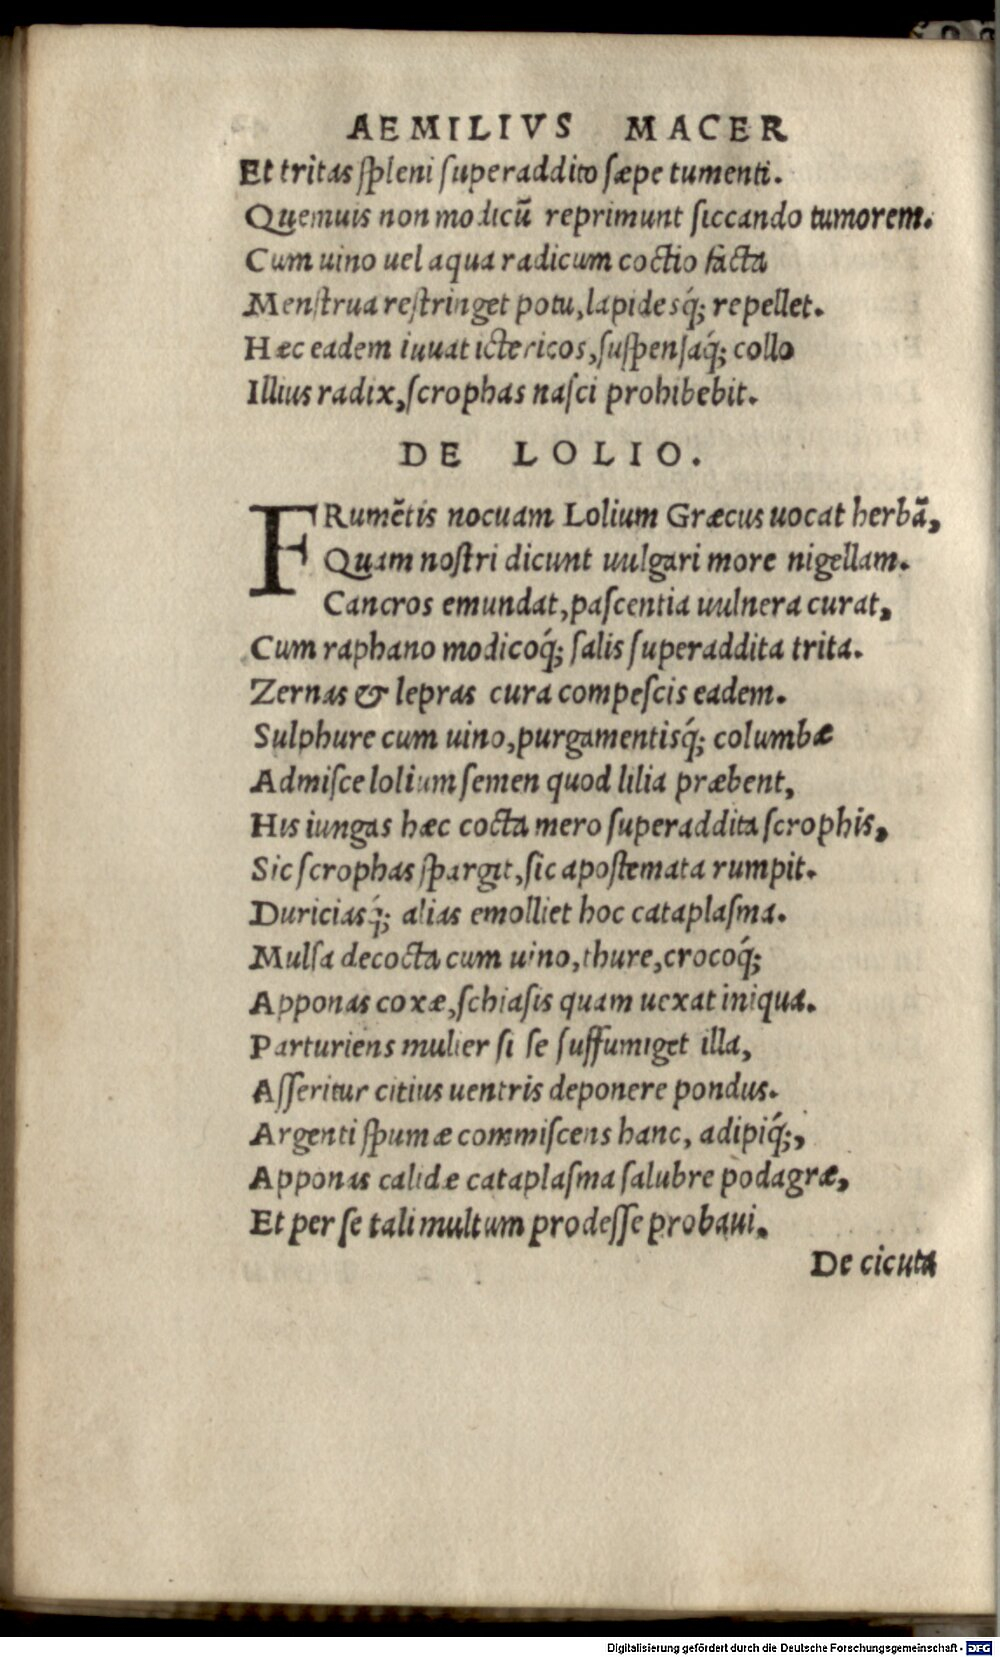 AEMILIVS MACER
Et tritas ſpleni ſuperaddito ſæpe tumenti.
Quemuis non modicũ reprimunt ſiccando tumorem.
Cum uino uel aqua radicum coctio facta
Menſtrua reſtringet potu, lapidesq́; repellet.
Hæc eadem iuuat ictericos, ſuſpenſaq́; collo
Illius radix, ſcrophas naſci prohibebit.
DE LOLIO.
FRumẽtis nocuam Lolium Græcus uocat herbã,
Quam noſtri dicunt uulgari more nigellam.
Cancros emundat, paſcentia uulnera curat,
Cum raphano modicoq́; ſalis ſuperaddita trita.
Zernas & lepras cura compeſcis eadem.
Sulphure cum uino, purgamentisq́; columbæ
Admiſce lolium ſemen quod lilia præbent,
His iungas hæc cocta mero ſuperaddita ſcrophis,
Sic ſcrophas ſpargit, ſic apoſtemata rumpit.
Duriciasq́; alias emolliet hoc cataplaſma.
Mulſa decocta cum uino, thure, crocoq́;
Apponas coxæ, ſchiaſis quam uexat iniqua.
Parturiens mulier ſi ſe ſuffumiget illa,
Aſſeritur citius uentris deponere pondus.
Argenti ſpumæ commiſcens hanc, adipiq́;,
Apponas calidæ cataplaſma ſalubre podagræ,
Et per ſe tali multum prodeſſe probaui.
De cicuta
Digitalisierung gefördert durch die Deutsche Forschungsgemeinschaft - DFG